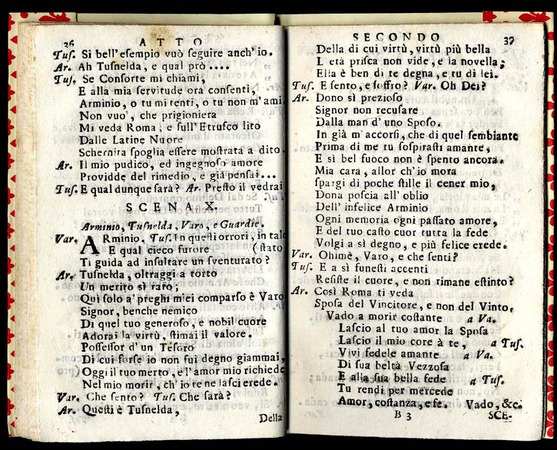 36 ATTO
Tuſ. Sì bell'eſempio vuò ſeguire anch'io.
Ar. Ah Tuſnelda, e qual prò....
Tuſ. Se Conſorte mi chiami,
E alla mia ſervitude ora conſenti,
Arminio, o tu mi tenti, o tu non m'ami
Non vuo', che prigioniera
Mi veda Roma, e ſull'Etruſco lito
Dalle Latine Nuore
Schernita ſpoglia eſſere moſtrata a dito.
Ar. Il mio pudico, ed ingegnoſo amore
Providde del rimedio, e già penſai...
Tuſ. E qual dunque ſarà? Ar. Preſto il vedrai
SCENA X.
Arminio, Tuſnelda, Varo, e Guardie.
Var. ARminio, Tuſ. In queſti orrori, in tale
E qual cieco furore (ſtato
Ti guida ad inſultare un ſventurato?
Ar. Tuſnelda, oltraggi a torto
Un merito sì raro;
Quì ſolo a' preghi miei comparſo è Varo
Signor, benche nemico
Di quel tuo generoſo, e nobil cuore
Adorai la virtù, ſtimai il valore.
Poſſeſſor d'un Teſoro
Di cui forſe io non fui degno giammai,
Oggi il tuo merto, e l'amor mio richiede
Nel mio morir, ch'io te ne laſci erede.
Var. Che ſento? Tuſ. Che ſarà?
Ar. Queſti è Tuſnelda,
Della
SECONDO 37
Della di cui virtù, virtù più bella
L'età priſca non vide, e la novella;
Ella è ben di te degna, e tu di lei.
Tuſ. E ſento, e ſoffro? Var. Oh Dei?
Ar. Dono sì prezioſo
Signor non recuſare
Dalla man d'uno Spoſo.
In già m'accorſi, che di quel ſembiante
Prima di me tu ſoſpiraſti amante,
E sì bel fuoco non è ſpento ancora.
Mia cara, allor ch'io mora
ſpargi di poche ſtille il cener mio,
Dona poſcia all'oblio
Dell'infelice Arminio
Ogni memoria ogni paſſato amore,
E del tuo caſto cuor tutta la fede
Volgi a sì degno, e più felice erede.
Var. Ohimè, Varo, e che ſenti?
Tuſ. E a sì funeſti accenti
Reſiſte il cuore, e non rimane eſtinto?
Ar. Così Roma ti veda
Spoſa del Vincitore, e non del Vinto,
Vado a morir coſtante a Va.
Laſcio al tuo amor la Spoſa
Laſcio il mio core à te, a Tuſ.
Vivi fedele amante a Va.
Di ſua beltà Vezzoſa
E alla ſua bella fede a Tuſ.
Tu rendi per mercede
Amor, coſtanza, e fe. Vado, &c.
B 3 SCE-